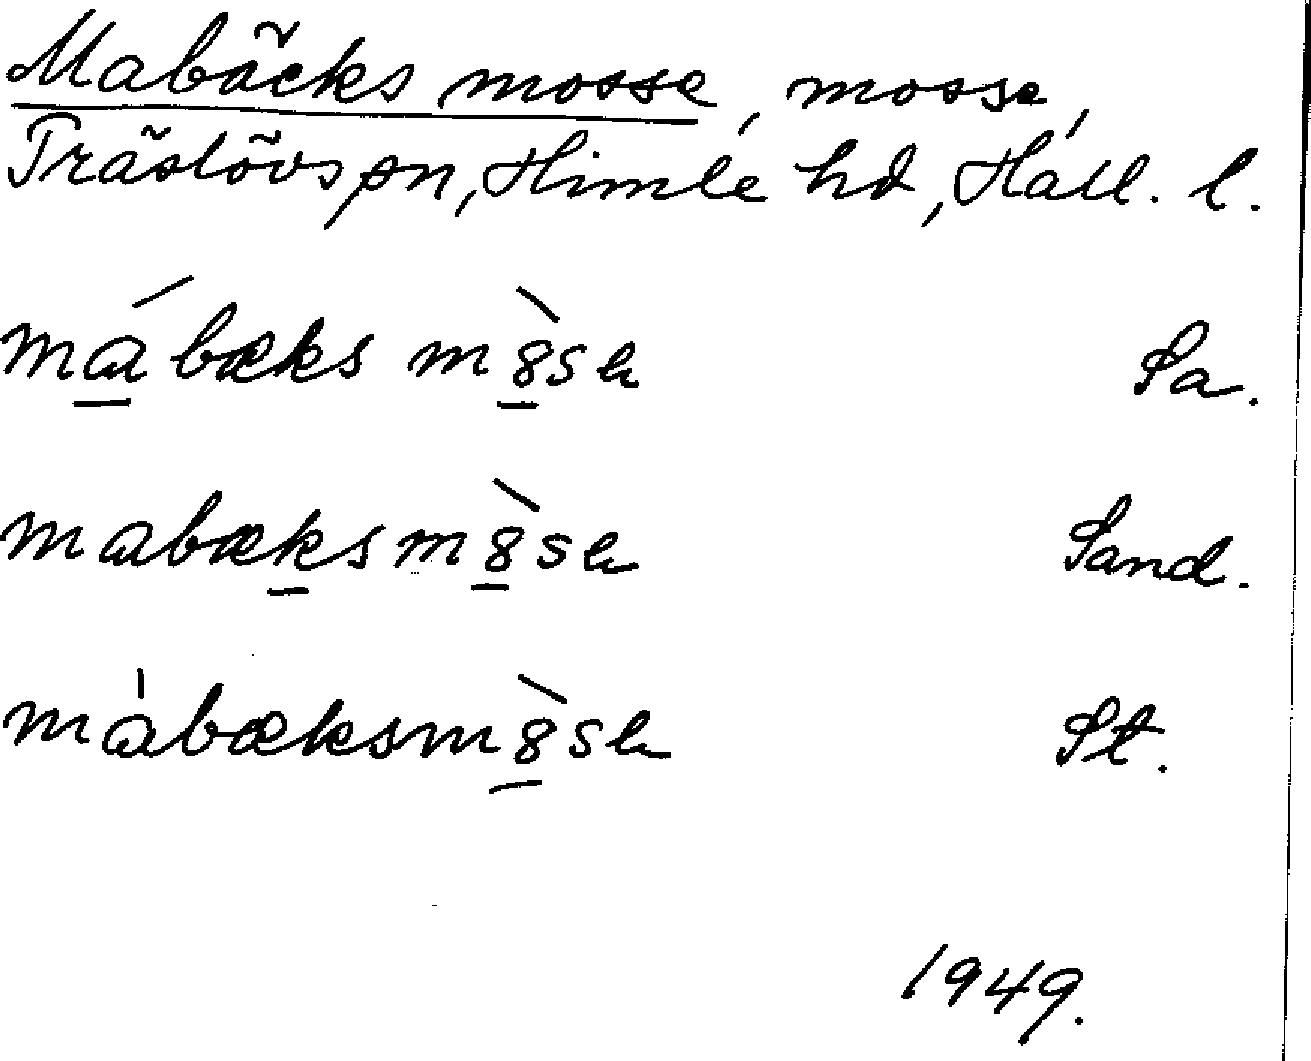 Mabäcks mosse, mosse,
Träslövs sn, Himle hd, Hall. l.
má̱bæks mò̱se Sa.
mabæḵsmò̱se Sand.
mábæksmò̱se St.
1949.